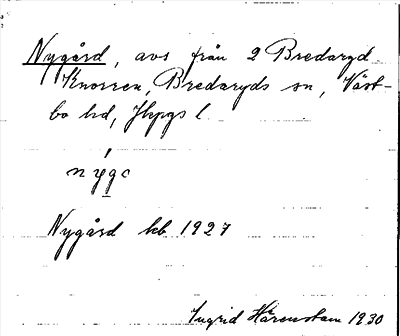 Nygård, avs från 2 Bredaryd
Knorren, Bredaryds sn, Väst-
bo hd, Jkpgs l.
Nygård kb 1927
Ingrid Hårenstam 1930